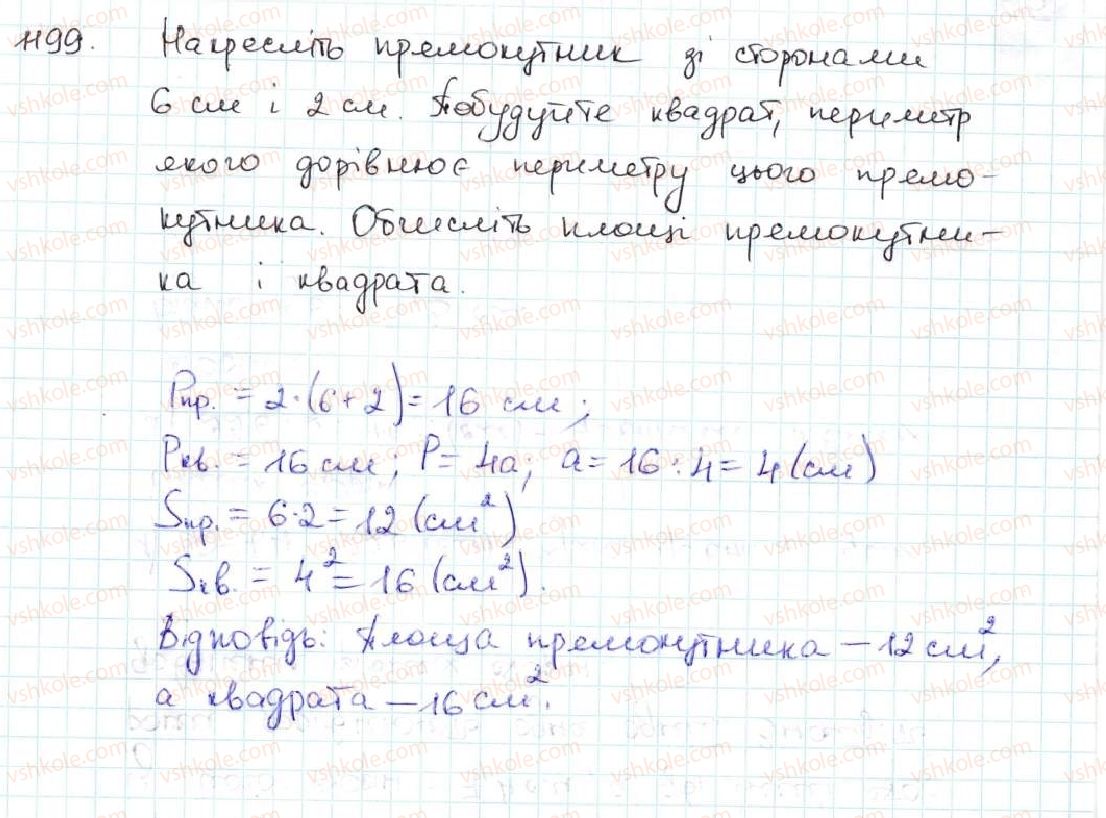 1199. Накресліть прямокутник зі сторонами
6 см і 2 см. Побудуйте квадрат, периметр
якого дорівнює периметру цього прямо-
кутника. Обчисліть площі прямокутни-
ка і квадрата.
Pпр. = 2·(6+2)=16 см;
Pкв. = 16 см; P= 4a; a=16:4=4(см)
Sпр. = 6·2=12(см²)
Sкв. = 4²=16(см²).
Відповідь: Площа прямокутника – 12 см²,
а квадрата – 16 см².